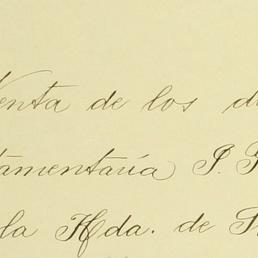 Venta de los d
tamentaría P. P
la Hda. de S